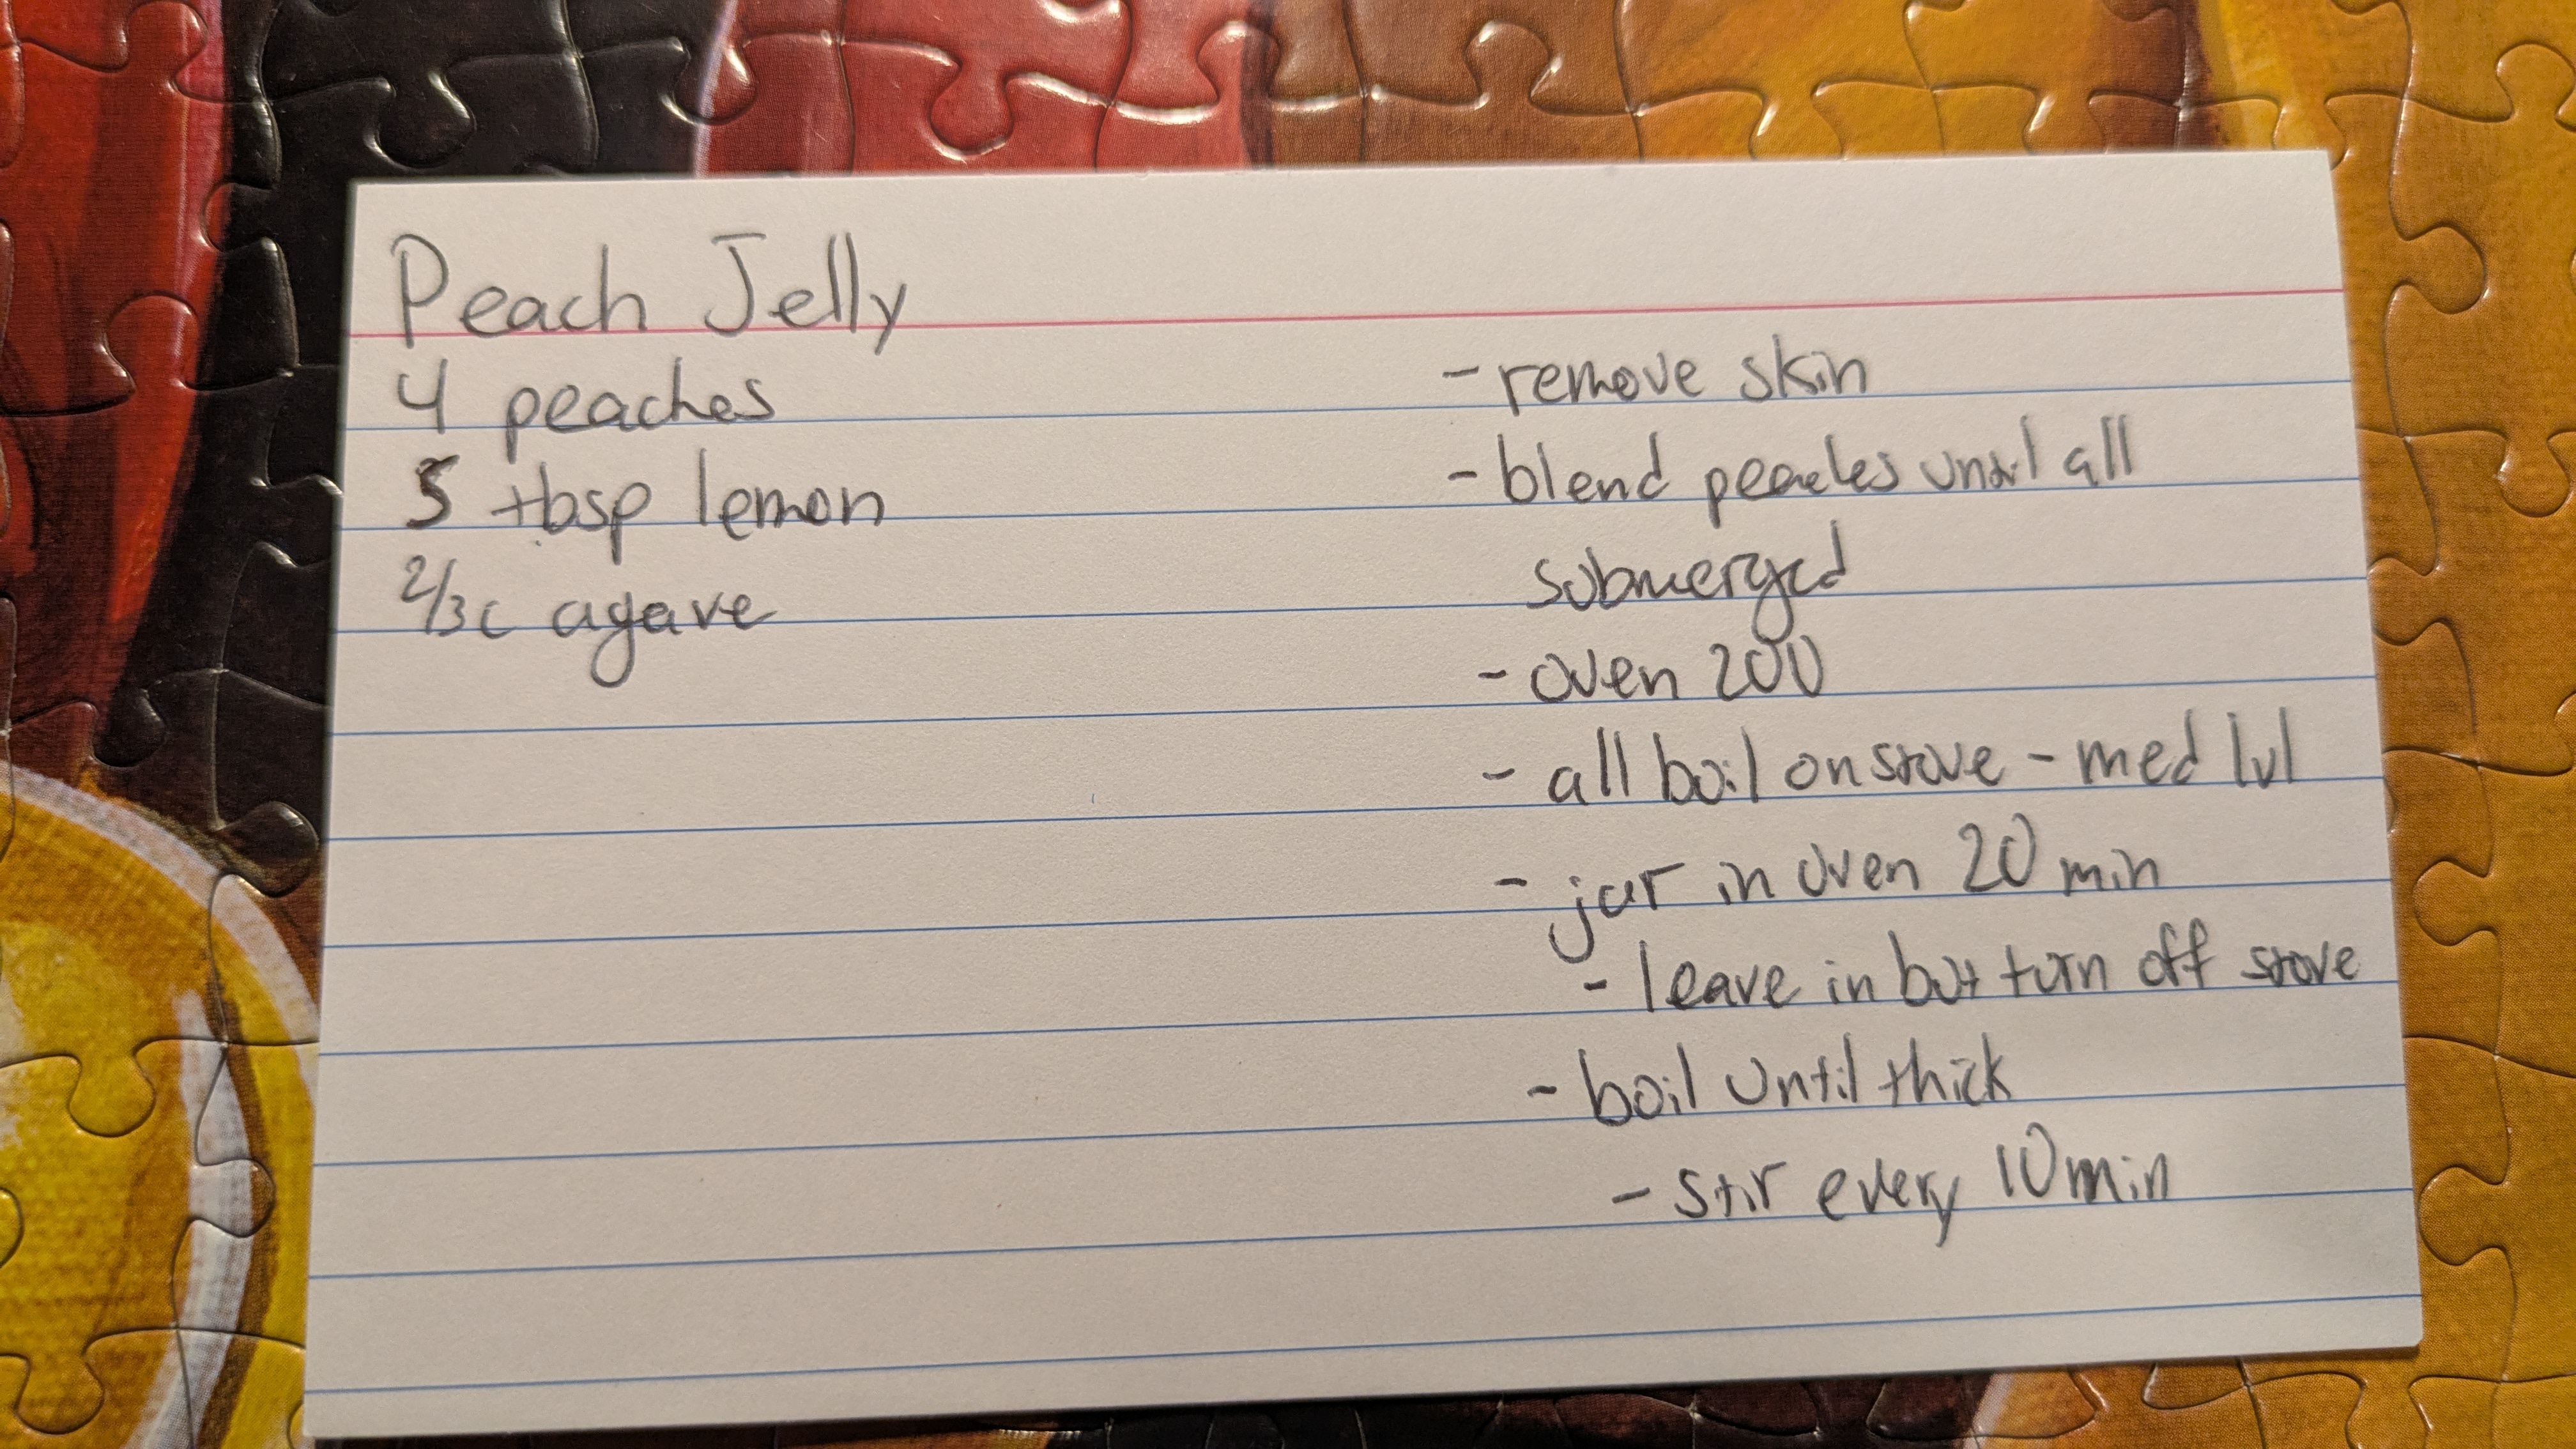 Peach Jelly
4 peaches
5 tbsp lemon
2/3 c agave
- remove skin
- blend peaches until all
submerged
- oven 200
- all boil on stove - med lvl
- jar in oven 20 min
- leave in but turn off stove
- boil until thick
- stir every 10 min